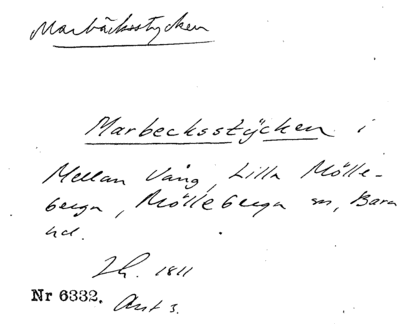 Marbäcksstycken
Marbecksstÿcken i
Mellan Vång, Lilla Mölle-
berga, Mölleberga sn, Bara
hd.
Lh. 1811
Nr 6332. Akt 3.